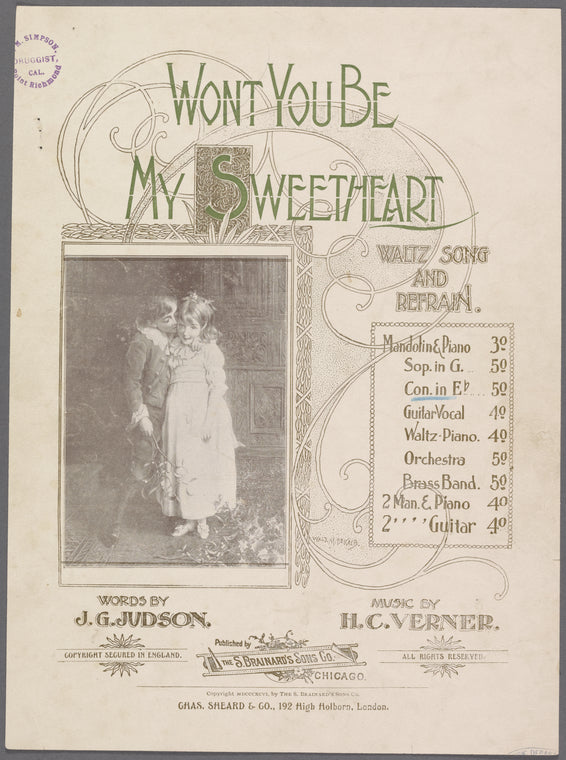 M. SIMPSON,
DRUGGIST,
CAL.
Point Richmond
WONT YOU BE
MY SWEETHEART
WALTZ SONG
AND
REFRAIN.
Mandolin & Piano 30
Sop. in G. .. 50
Con. in E♭ .... 50
Guitar-Vocal 40
Waltz-Piano. 40
Orchestra 50
Brass Band. 50
2 Man. & Piano 40
2 ' ' ' ' Guitar 40
WORDS BY
J. G. JUDSON.
MUSIC BY
H. C. VERNER.
COPYRIGHT SECURED IN ENGLAND.
Published by
THE S. BRAINARD'S SONS CO.
CHICAGO.
ALL RIGHTS RESERVED.
Copyright MDCCCXCVI, by THE S. BRAINARD'S SONS CO.
CHAS. SHEARD & CO., 192 High Holborn, London.